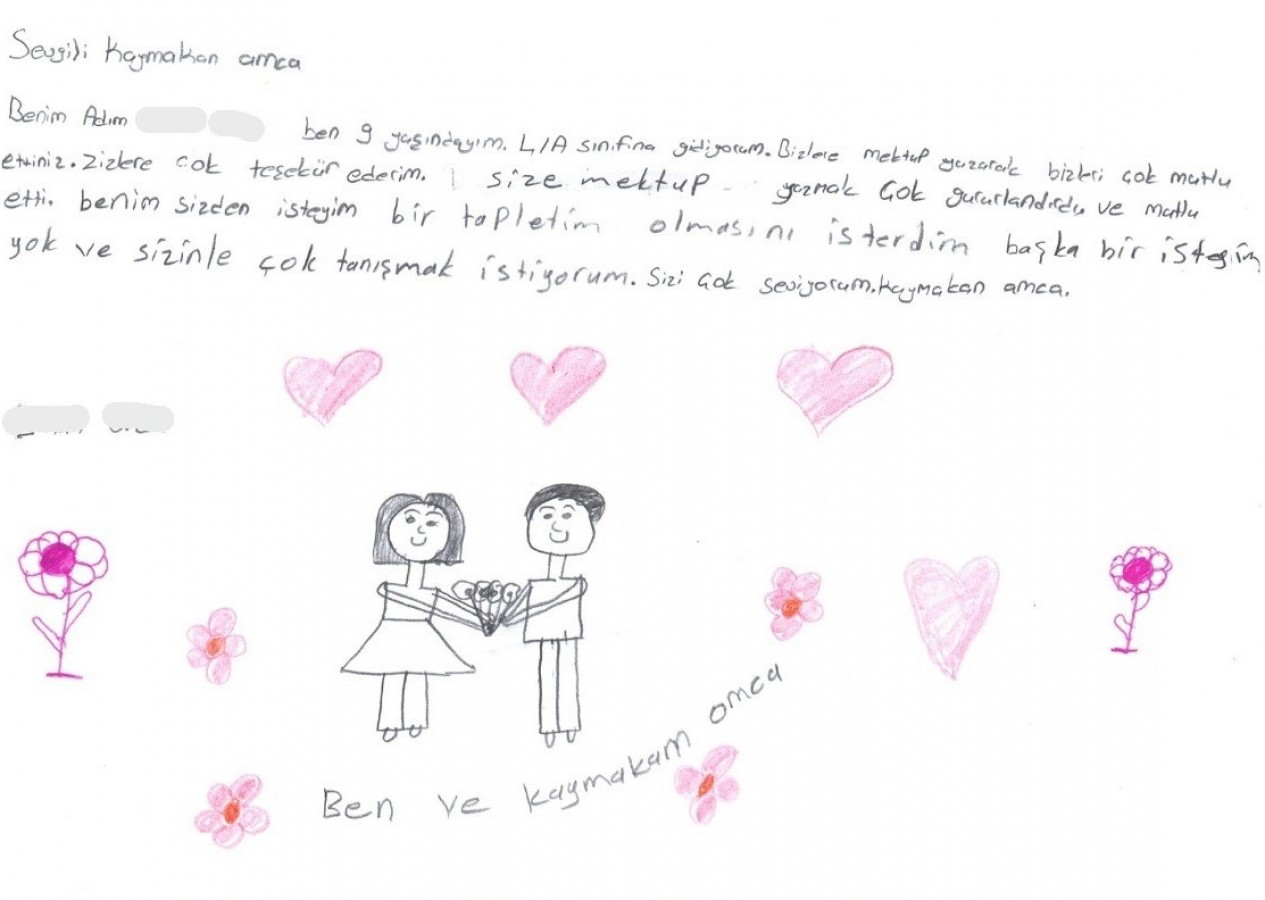 Sevgili Kaymakan amca
Benim Adım ben 9 yaşındayım. 4/A sınıfına gidiyorum. Bizlere mektup yazarak bizleri çok mutlu
ettiniz. Zizlere çok teşekür ederim. size mektup yazmak çok gururlandırdı ve mutlu
etti. benim sizden isteyim bir tapletim olmasını isterdim başka bir isteğim
yok ve sizinle çok tanışmak istiyorum. Sizi çok seviyorum. kaymakan amca.
Ben ve kaymakam amca